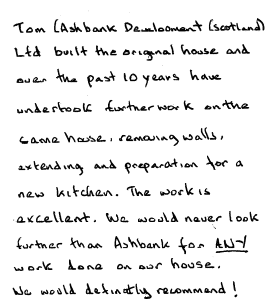 Tom (Ashbank Development (Scotland)
Ltd built the original house and
over the past 10 years have
undertook further work on the
same house, removing walls,
extending and preparation for a
new kitchen. The work is
excellent. We would never look
further than Ashbank for ANY
work done on our house.
We would definatly recommend!